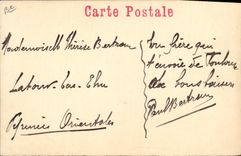 Carte Postale
Mademoiselle Thérèse Bertran
Latour-bas-Elne
Pyrénées Orientales
Ton frère qui
t'envoie de Toulouse
Paul Bertran